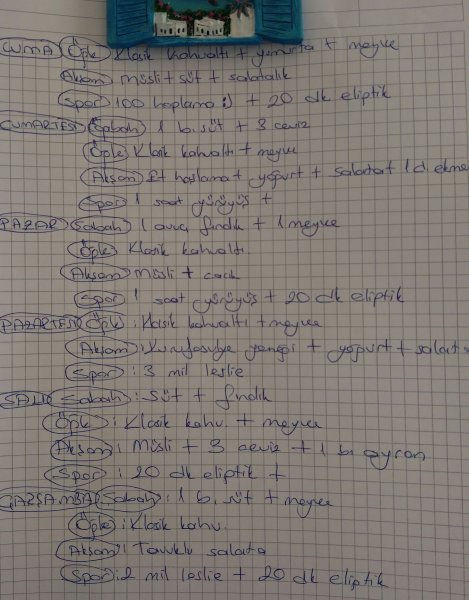 CUMA Öğle Klasik kahvaltı + yumurta + meyve
Akşam Müsli + süt + salatalık
Spor 100 hoplama :) + 20 dk eliptik
CUMARTESİ Sabah 1 b. süt + 3 ceviz
Öğle Klasik kahvaltı + meyve
Akşam Et haşlama + yoğurt + salata + 1 d. ekme
Spor 1 saat yürüyüş +
PAZAR Sabah 1 avuç fındık + 1 meyve
Öğle Klasik kahvaltı.
Akşam Müsli + cacık
Spor 1 saat yürüyüş + 20 dk eliptik
PAZARTESİ Öğle : Klasik kahvaltı + meyve
Akşam : Kurufasulye yemeği + yoğurt + salata
Spor : 3 mil leslie
SALI Sabah : Süt + fındık
Öğle : Klasik kahv. + meyve
Akşam : Müsli + 3 ceviz + 1 b. ayran
Spor : 20 dk eliptik +
ÇARŞAMBA Sabah : 1 b. süt + meyve
Öğle : Klasik kahv.
Akşam : Tavuklu salata
Spor : 2 mil leslie + 20 dk eliptik